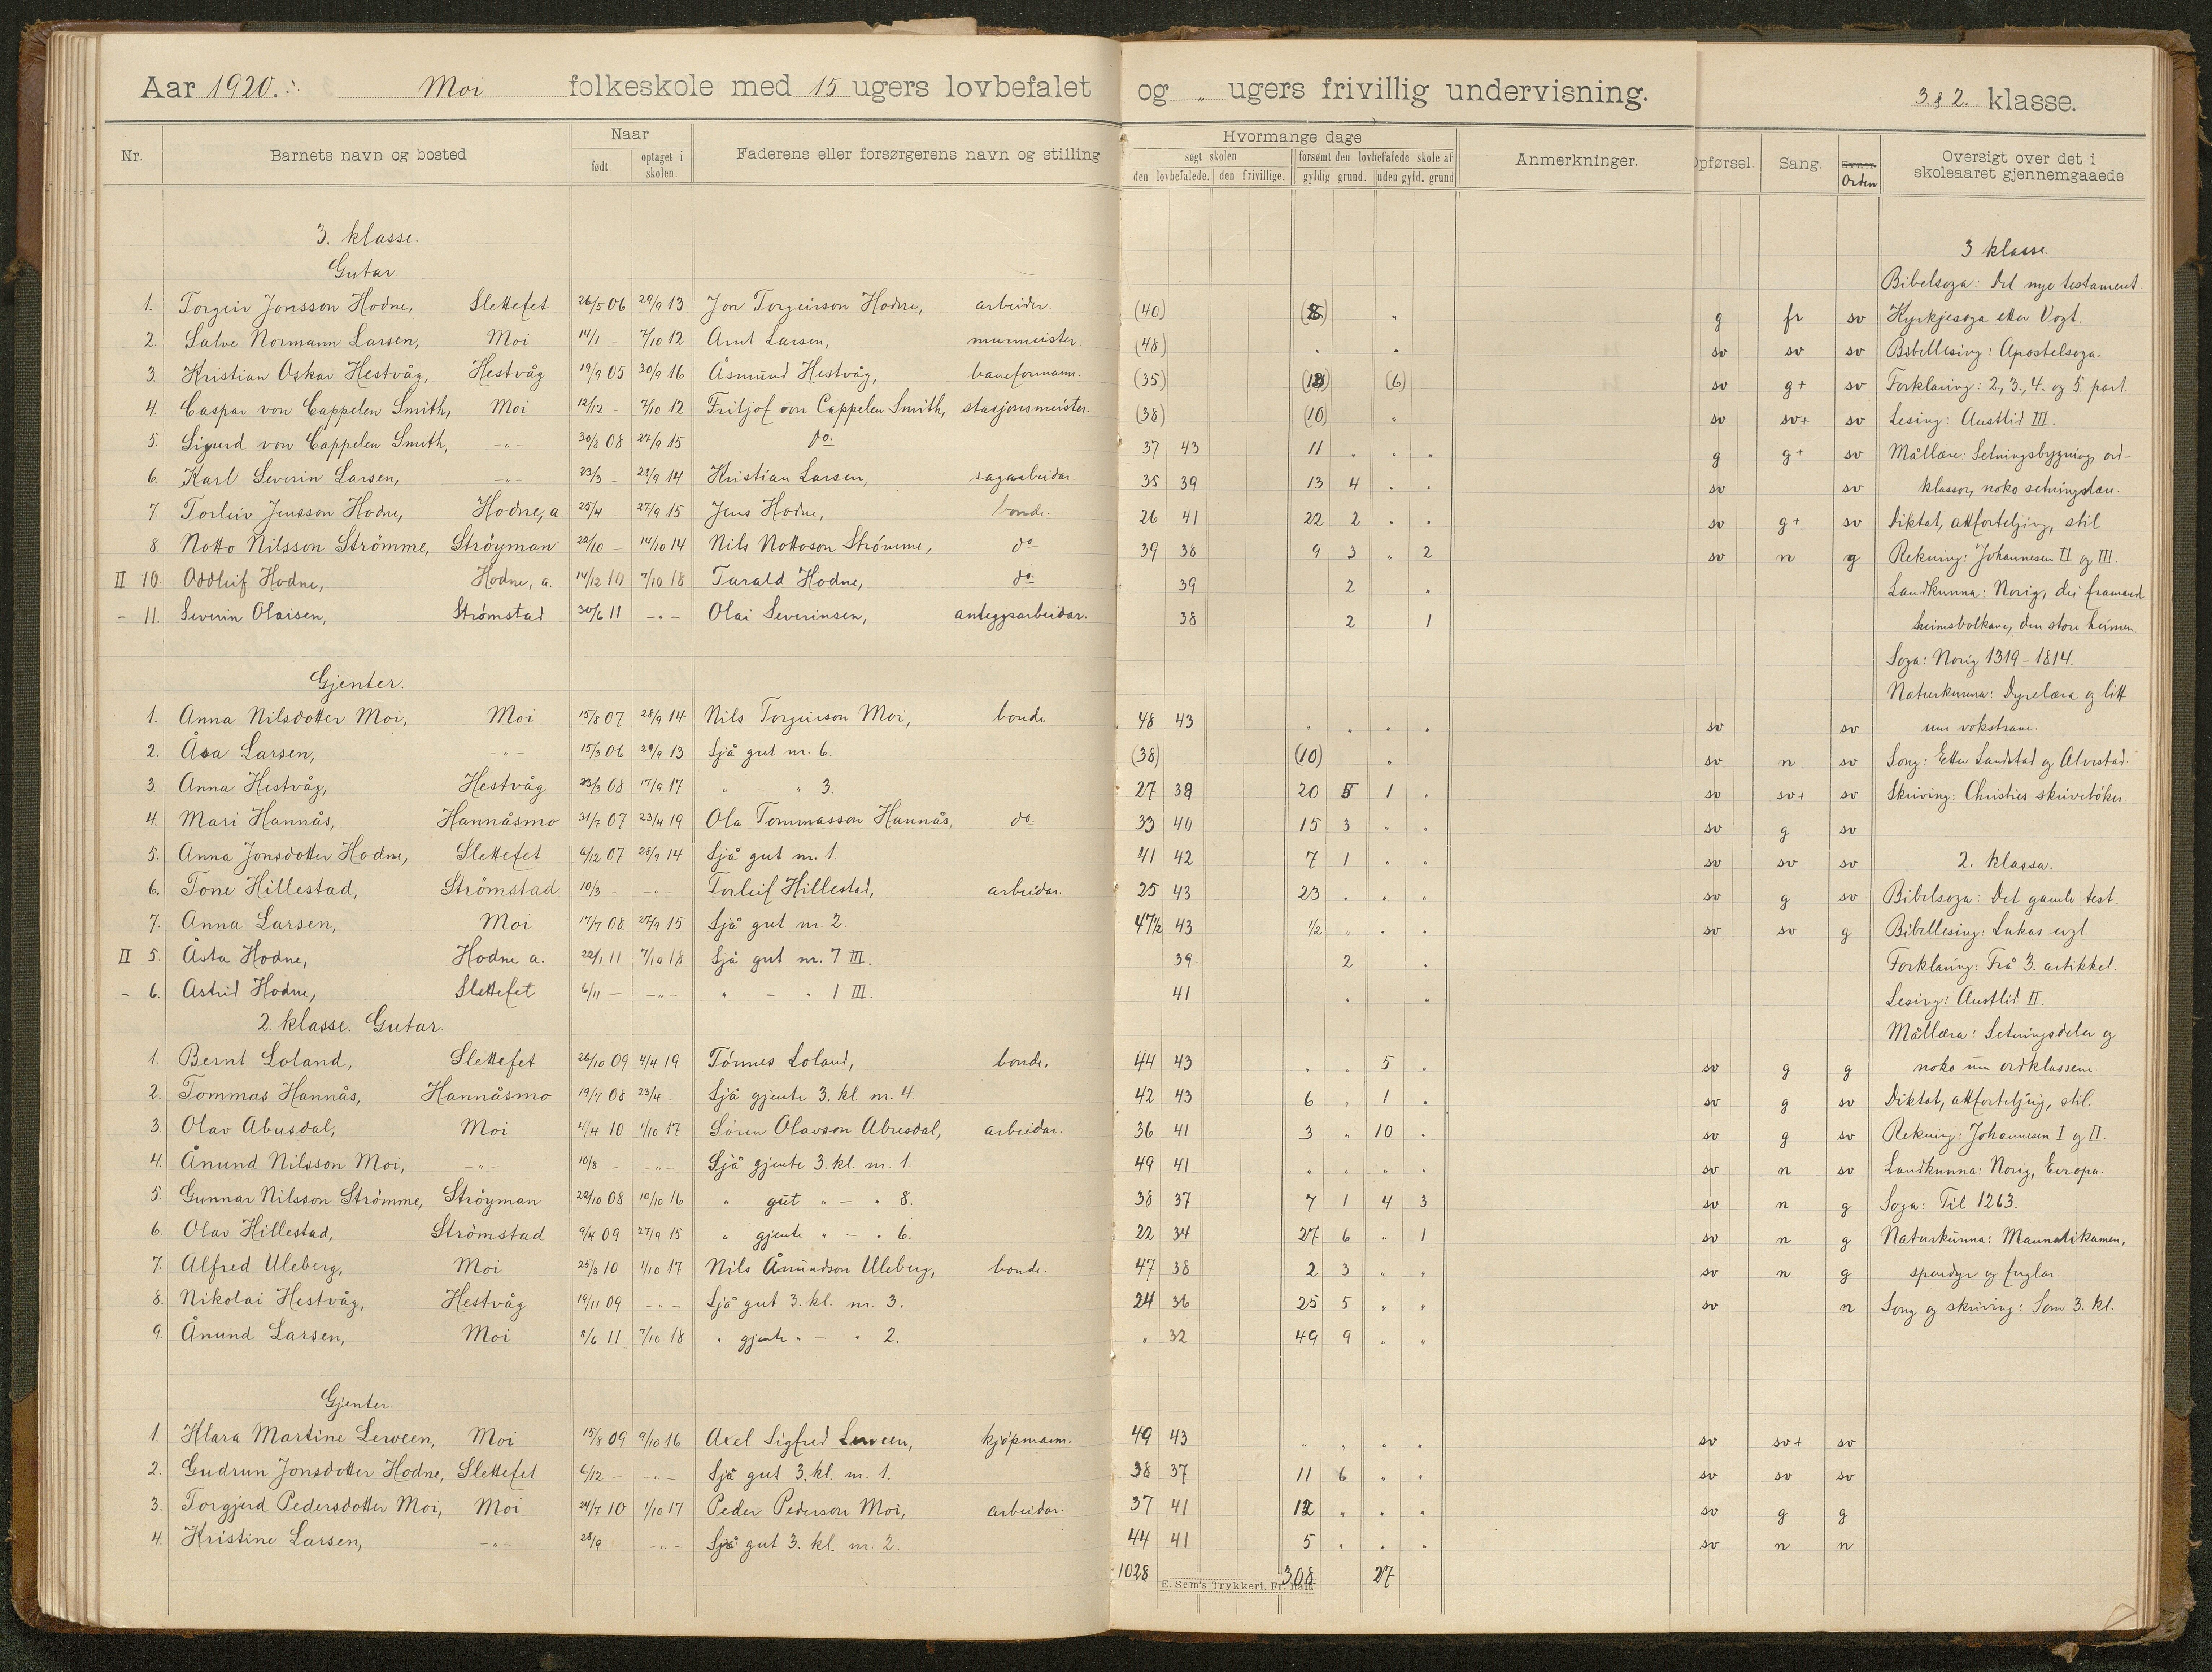 Aar 1920. Moi folkeskole med 15 ugers lovbefalet og " ugers frivillig undervisning. 3. & 2. klasse.
Nr. Barnets navn og bosted Naar født optaget i skolen. Faderens eller forsørgerens navn og stilling
Hvormange dage søgt skolen den lovbefalede. den frivillige. forsømt den lovbefalede skole af gyldig grund. uden gyld. grund Anmerkninger. Opførsel Sang. Orden Oversigt over det i skoleaaret gjennemgaaede
3. klasse.
Gutar.
1. Torgeir Jonsson Hodne, Slettefet 26/5 06 29/9 13 Jon Torgeirson Hodne, arbeider. (40) (8) " g fr sv
2. Salve Normann Larsen, Moi 14/1 - 7/10 12 Arnt Larsen, murmeister. (48) " " sv sv sv
3. Kristian Oskar Hestvåg, Hestvåg 19/9 05 30/9 16 Åsmund Hestvåg, baneformann. (35) (13) (6) sv g+ sv
4. Caspar von Cappelen Smith, Moi 12/12 - 7/10 12 Fritjof von Cappelen Smith, stasjonsmeister. (38) (10) " sv sv+ sv
5. Sigurd von Cappelen Smith, -"- 30/8 08 27/9 15 do. 37 43 11 " " " g g+ sv
6. Karl Severin Larsen, -"- 23/3 - 28/9 14 Kristian Larsen, sagarbeidar. 35 39 13 4 " " sv sv
7. Torleiv Jensson Hodne, Hodne, a. 25/4 - 27/9 15 Jens Hodne, bonde. 26 41 22 2 " " sv g+ sv
8. Notto Nilsson Strömme, Ströyman 22/10 - 14/10 14 Nils Nottoson Strömme, do 39 38 9 3 " 2 sv n g
II 10. Oddleif Hodne, Hodne, a. 14/12 10 7/10 18 Tarald Hodne, do. 39 2 "
- 11. Severin Olaisen, Strømstad 30/6 11 -"- Olai Severinsen, anleggsarbeidar. 38 2 1
Gjenter.
1. Anna Nilsdotter Moi, Moi 15/8 07 28/9 14 Nils Torgeirson Moi, bonde 48 43 " " " " sv sv
2. Åsa Larsen, -"- 15/3 06 29/9 13 Sjå gut nr. 6. (38) (10) " sv n sv
3. Anna Hestvåg, Hestvåg 23/3 08 17/9 17 " - " 3. 27 38 20 5 1 " sv sv+ sv
4. Mari Hannås, Hannåsmo 31/7 07 23/4 19 Ola Tommasson Hannås, do. 33 40 15 3 " " sv g sv
5. Anna Jonsdotter Hodne, Slettefet 6/12 07 28/9 14 Sjå gut nr. 1. 41 42 7 1 " " sv sv sv
6. Tone Hillestad, Strömstad 10/3 - -"- Torleif Hillestad, arbeidar. 25 43 23 " " " sv g sv
7. Anna Larsen, Moi 17/7 08 27/9 15 Sjå gut nr. 2. 47½ 43 ½ " " " sv sv g
II 5. Åsta Hodne, Hodne a. 22/1 11 7/10 18 Sjå gut nr. 7 III. 39 2 "
- 6. Astrid Hodne, Slettefet 6/11 - -"- " - " 1 III. 41 " "
2. klasse. Gutar.
1. Bernt Loland, Slettefet 26/10 09 4/4 19 Tönnes Loland, bonde. 44 43 " " 5 " sv g g
2. Tommas Hannås, Hannåsmo 19/7 08 23/4 - Sjå gjente 3. kl. nr. 4. 42 43 6 " 1 " sv g sv
3. Olav Abusdal, Moi 4/4 10 1/10 17 Sören Olavson Abusdal, arbeidar. 36 41 3 " 10 " sv g sv
4. Ånund Nilsson Moi, -"- 10/8 - -"- Sjå gjente 3. kl. nr. 1. 49 41 " " " " sv n sv
5. Gunnar Nilsson Strömme, Ströyman 22/10 08 10/10 16 " gut " - " 8. 38 37 7 1 4 3 sv n g
6. Olav Hillestad, Strömstad 9/4 09 27/9 15 " gjente " - " 6. 22 34 27 6 " 1 sv n g
7. Alfred Uleberg, Moi 25/3 10 1/10 17 Nils Ånundson Uleberg, bonde. 47 38 2 3 " " sv n g
8. Nikolai Hestvåg, Hestvåg 19/11 09 -"- Sjå gut 3. kl. nr. 3. 24 36 25 5 " " sv n
9. Ånund Larsen, Moi 8/6 11 7/10 18 " gjente " - " 2. " 32 49 9 " "
Gjenter.
1. Klara Martine Lerveen, Moi 15/8 09 9/10 16 Axel Sigfred Lerveen, kjøpmann. 49 43 " " " " sv sv+ sv
2. Gudrun Jonsdotter Hodne, Slettefet 6/12 - -"- Sjå gut 3. kl. nr. 1. 38 37 11 6 " " sv sv sv
3. Torgjerd Pedersdotter Moi, Moi 24/7 10 1/10 17 Peder Pederson Moi, arbeidar. 37 41 12 " " " sv g g
4. Kristine Larsen, -"- 28/9 - -"- Sjå gut 3. kl. nr. 2. 44 41 5 " " " sv n n
1028 308 27
E. Sem's Trykkeri, Fr.hald
3 klasse.
Bibelsoga: Det nye testament.
Kyrkjesoga etter Vogt.
Bibellesing: Apostelsoga.
Forklaring: 2., 3., 4. og 5. part
Lesing: Austlid III.
Mållære: Setningsbygning, ord-
klassor, noko setningslære.
Diktat, attforteljing, stil
Rekning: Johannesen II og III.
Landkunna: Norig, dei framande
heimsbolkane, den store heimen.
Soga: Norig 1319-1814.
Naturkunna: Dyrelæra og litt
um vokstrane.
Song: Etter Landstad og Alvestad.
Skriving: Christies skrivebøker.
2. klassa.
Bibelsoga: Det gamle test.
Bibellesing: Lukas evgl.
Forklaring: Frå 3. artikkel.
Lesing: Austlid II.
Mållæra: Setningsdelar og
noko um ordklassene.
Diktat, attforteljing, stil.
Rekning: Johannesen I og II.
Landkunna: Norig, Europa.
Soga: Til 1263.
Naturkunna: Mannalikamen,
spendyr og fuglar.
Song og skriving: Som 3. kl.